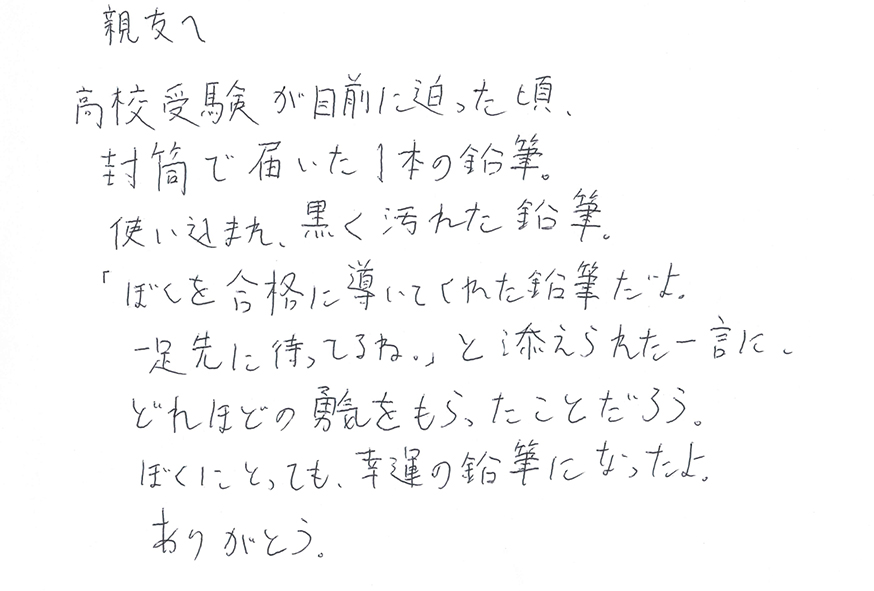 親友へ
高校受験が目前に迫った頃、
封筒で届いた1本の鉛筆。
使い込まれ、黒く汚れた鉛筆。
「ぼくを合格に導いてくれた鉛筆だよ。
一足先に待ってるね。」と添えられた一言に、
どれほどの勇気をもらったことだろう。
ぼくにとっても、幸運の鉛筆になったよ。
ありがとう。